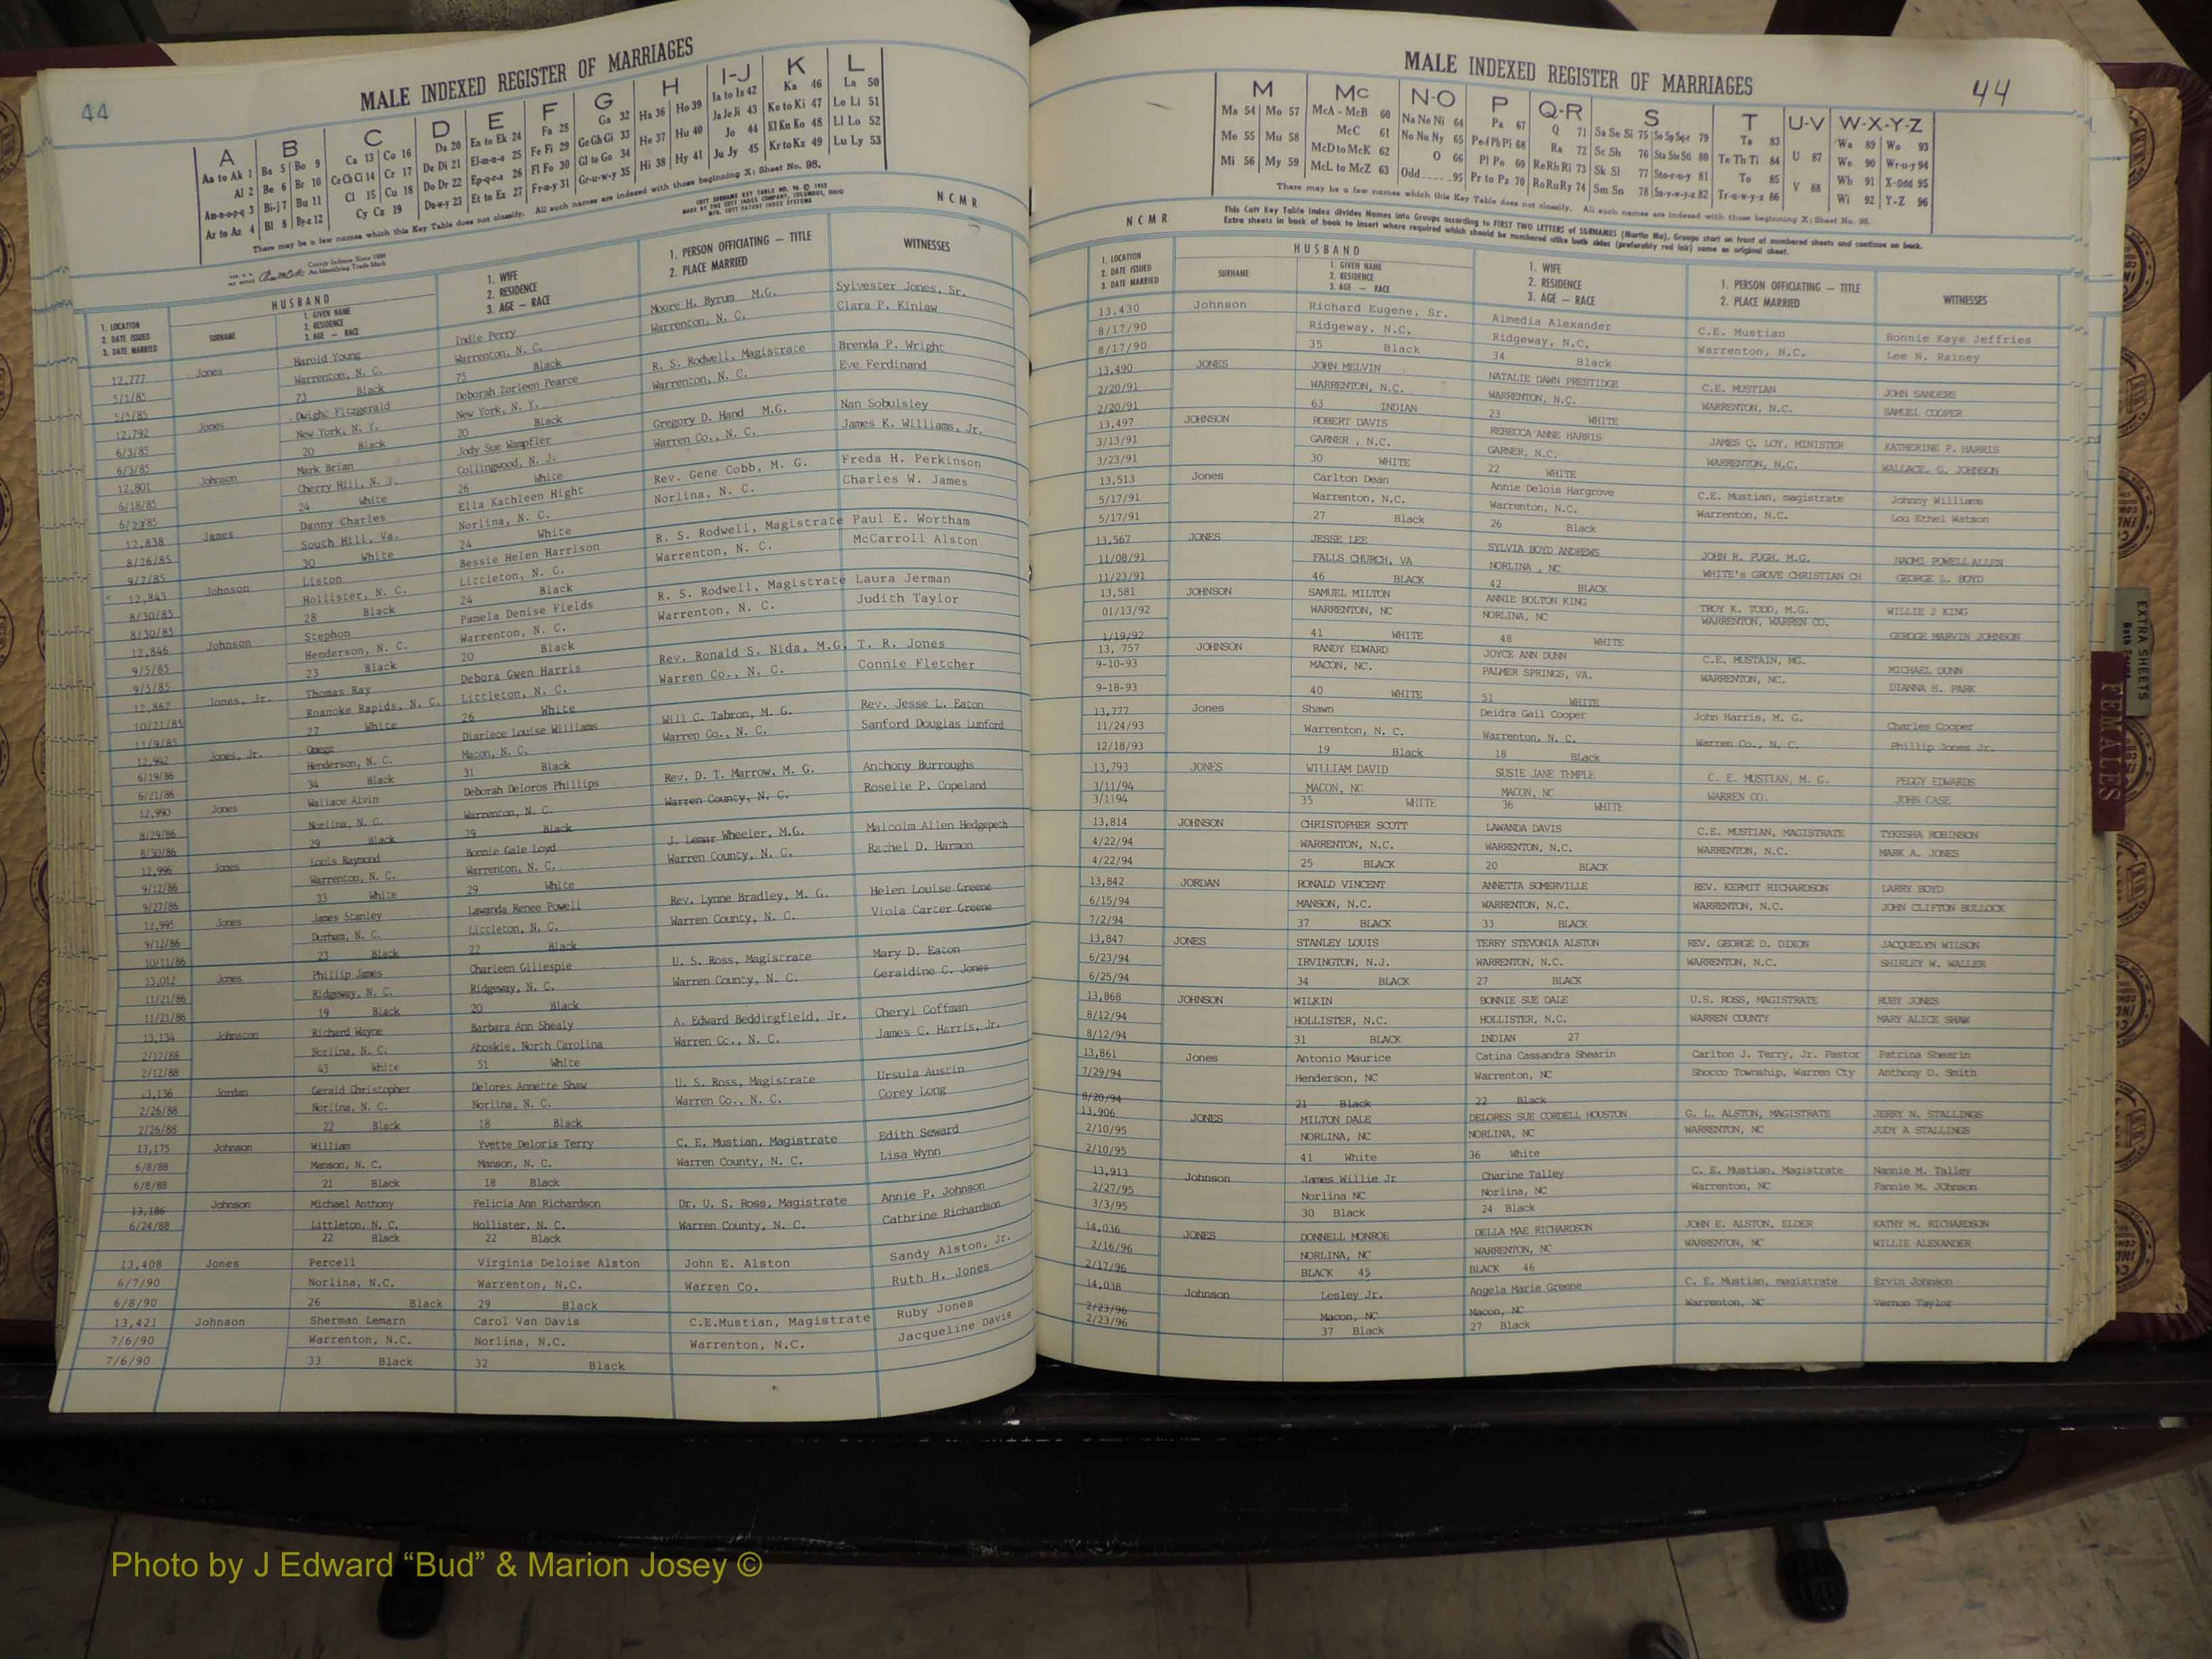 44
MALE INDEXED REGISTER OF MARRIAGES
A B C D E F G H I-J K L
Aa to Ak 1 Ba 5 Bo 9 Ca 13 Co 16 Da 20 Ea to Ek 24 Fa 28 Ga 32 Ha 36 Ho 39 Ia to Iz 42 Ka 46 La 50
Al 2 Be 6 Br 10 Ce Ch Ci 14 Cr 17 De Di 21 El-m-n-o 25 Fe Fi 29 Ge Gh Gi 33 He 37 Hu 40 Ja Je Ji 43 Ke to Ki 47 Le Li 51
Am-n-o-p-q 3 Bi-j 7 Bu 11 Cl 15 Cu 18 Do Dr 22 Ep-q-r-s 26 Fl Fo 30 Gl to Go 34 Hi 38 Hy 41 Jo 44 Kl Kn Ko 48 Ll Lo 52
Ar to Az 4 Bl 8 By-z 12 Cy Cz 19 Du-w-y 23 Et to Ez 27 Fr-u-y 31 Gr-u-w-y 35 Ju Jy 45 Kr to Kz 49 Lu Ly 53
There may be a few names which this Key Table does not classify. All such names are indexed with those beginning X; Sheet No. 95.
NCMR
HUSBAND
1. LOCATION
2. DATE ISSUED
3. DATE MARRIED
SURNAME
1. GIVEN NAME
2. RESIDENCE
3. AGE — RACE
1. WIFE
2. RESIDENCE
3. AGE — RACE
1. PERSON OFFICIATING — TITLE
2. PLACE MARRIED
WITNESSES
12,777 Jones Harold Young Indie Perry Moore H. Byrum M.G. Sylvester Jones, Sr.
5/1/85 Warrenton, N. C. Warrenton, N. C. Warrenton, N. C. Clara P. Kinlaw
5/5/85 73 Black 75 Black
12,792 Jones Dwight Fitzgerald Deborah Zorleen Pearce R. S. Rodwell, Magistrate Brenda P. Wright
6/3/85 New York, N. Y. New York, N. Y. Warrenton, N. C. Eve Ferdinand
6/3/85 20 Black 20 Black
12,801 Johnson Mark Brian Jody Sue Wampfler Gregory D. Hand M.G. Nan Sobulsley
6/18/85 Cherry Hill, N. J. Collingwood, N. J. Warren Co., N. C. James K. Williams, Jr.
6/22/85 24 White 26 White
12,838 James Danny Charles Ella Kathleen Hight Rev. Gene Cobb, M. G. Freda H. Perkinson
8/26/85 South Hill, Va. Norlina, N. C. Norlina, N. C. Charles W. James
9/7/85 30 White 24 White
12,843 Johnson Liston Bessie Helen Harrison R. S. Rodwell, Magistrate Paul E. Wortham
8/30/85 Hollister, N. C. Littleton, N. C. Warrenton, N. C. McCarroll Alston
8/30/85 28 Black 24 Black
12,846 Johnson Stephon Pamela Denise Fields R. S. Rodwell, Magistrate Laura Jerman
9/5/85 Henderson, N. C. Warrenton, N. C. Warrenton, N. C. Judith Taylor
9/5/85 23 Black 20 Black
12,862 Jones, Jr. Thomas Ray Debora Gwen Harris Rev. Ronald S. Nida, M.G. T. R. Jones
10/21/85 Roanoke Rapids, N. C. Littleton, N. C. Warren Co., N. C. Connie Fletcher
11/9/85 27 White 26 White
12,942 Jones, Jr. Omega Diariece Louise Williams Will C. Tabron, M. G. Rev. Jesse L. Eaton
6/19/86 Henderson, N. C. Macon, N. C. Warren Co., N. C. Sanford Douglas Lunford
6/21/86 34 Black 31 Black
12,990 Jones Wallace Alvin Deborah Deloros Phillips Rev. D. T. Marrow, M. G. Anthony Burroughs
8/29/86 Norlina, N. C. Warrenton, N. C. Warren County, N. C. Roselle P. Copeland
8/30/86 29 Black 29 Black
12,996 Jones Louis Raymond Bonnie Gale Loyd J. Lemar Wheeler, M.G. Malcolm Allen Hedgepeth
9/12/86 Warrenton, N. C. Warrenton, N. C. Warren County, N. C. Rachel D. Harmon
9/27/86 33 White 29 White
12,995 Jones James Stanley Lawanda Renee Powell Rev. Lynne Bradley, M. G. Helen Louise Greene
9/12/86 Durham, N. C. Littleton, N. C. Warren County, N. C. Viola Carter Greene
10/11/86 23 Black 22 Black
13,012 Jones Phillip James Charleen Gillespie U. S. Ross, Magistrate Mary D. Eaton
11/21/86 Ridgeway, N. C. Ridgeway, N. C. Warren County, N. C. Geraldine C. Jones
11/21/86 19 Black 20 Black
13,134 Johnston Richard Wayne Barbara Ann Shealy A. Edward Beddingfield, Jr. Cheryl Coffman
2/12/88 Norlina, N. C. Ahoskie, North Carolina Warren Co., N. C. James C. Harris, Jr.
2/12/88 43 White 51 White
13,136 Jordan Gerald Christopher Delores Annette Shaw U. S. Ross, Magistrate Ursula Austin
2/26/88 Norlina, N. C. Norlina, N. C. Warren Co., N. C. Corey Long
2/26/88 22 Black 18 Black
13,175 Johnson William Yvette Deloris Terry C. E. Mustian, Magistrate Edith Seward
6/8/88 Manson, N. C. Manson, N. C. Warren County, N. C. Lisa Wynn
6/8/88 21 Black 18 Black
13,186 Johnson Michael Anthony Felicia Ann Richardson Dr. U. S. Ross, Magistrate Annie P. Johnson
6/24/88 Littleton, N. C. Hollister, N. C. Warren County, N. C. Cathrine Richardson
22 Black 22 Black
13,408 Jones Percell Virginia Deloise Alston John E. Alston Sandy Alston, Jr.
6/7/90 Norlina, N.C. Warrenton, N.C. Warren Co. Ruth H. Jones
6/8/90 26 Black 29 Black
13,421 Johnson Sherman Lemarn Carol Van Davis C.E.Mustian, Magistrate Ruby Jones
7/6/90 Warrenton, N.C. Norlina, N.C. Warrenton, N.C. Jacqueline Davis
7/6/90 33 Black 32 Black
44
MALE INDEXED REGISTER OF MARRIAGES
M Mc N-O P Q-R S T U-V W-X-Y-Z
Ma 54 Mo 57 McA - McB 60 Na Ne Ni 64 Pa 67 Q 71 Sa Se Si 75 So Sp Sq-r 79 Ta 83 Wa 89 Wo 93
Me 55 Mu 58 McC 61 No Nu Ny 65 Pe-f Ph Pi 68 Ra 72 Sc Sh 76 Sta Ste Sti 80 Te Th Ti 84 U 87 We 90 Wr-u-y 94
Mi 56 My 59 McD to McK 62 O 66 Pl Po 69 Re Rh Ri 73 Sk Sl 77 Sto-r-u-y 81 To 85 V 88 Wh 91 X-Odd 95
McL to McZ 63 Odd 95 Pr to Pz 70 Ro Ru Ry 74 Sm Sn 78 Su-v-w-y-z 82 Tr-u-w-y-z 86 Wi 92 Y-Z 96
There may be a few names which this Key Table does not classify. All such names are indexed with those beginning X; Sheet No. 95.
NCMR
This Cott Key Table Index divides Names into Groups according to FIRST TWO LETTERS of SURNAMES (Martin Ma). Groups start on front of numbered sheets and continue on back.
Extra sheets in back of book to insert where required which should be numbered alike both sides (preferably red ink) same as original sheet.
HUSBAND
1. LOCATION
2. DATE ISSUED
3. DATE MARRIED
SURNAME
1. GIVEN NAME
2. RESIDENCE
3. AGE — RACE
1. WIFE
2. RESIDENCE
3. AGE — RACE
1. PERSON OFFICIATING — TITLE
2. PLACE MARRIED
WITNESSES
13,430 Johnson Richard Eugene, Sr. Almedia Alexander C.E. Mustian Bonnie Kaye Jeffries
8/17/90 Ridgeway, N.C. Ridgeway, N.C. Warrenton, N.C. Lee N. Rainey
8/17/90 35 Black 34 Black
13,490 JONES JOHN MELVIN NATALIE DAWN PRESTIDGE C.E. MUSTIAN JOHN SANDERS
2/20/91 WARRENTON, N.C. WARRENTON, N.C. WARRENTON, N.C. SAMUEL COOPER
2/20/91 63 INDIAN 23 WHITE
13,497 JOHNSON ROBERT DAVIS REBECCA ANNE HARRIS JAMES C. LOY, MINISTER KATHERINE P. HARRIS
3/13/91 GARNER , N.C. GARNER, N.C. WARRENTON, N.C. WALLACE. G. JOHNSON
3/23/91 30 WHITE 22 WHITE
13,513 Jones Carlton Dean Annie Delois Hargrove C.E. Mustian, magistrate Johnny Williams
5/17/91 Warrenton, N.C. Warrenton, N.C. Warrenton, N.C. Lou Ethel Watson
5/17/91 27 Black 26 Black
13,567 JONES JESSE LEE SYLVIA BOYD ANDREWS JOHN R. PUGH, M.G. NAOMI POWELL ALLEN
11/08/91 FALLS CHURCH, VA NORLINA , NC WHITE's GROVE CHRISTIAN CH GEORGE L. BOYD
11/23/91 46 BLACK 42 BLACK
13,581 JOHNSON SAMUEL MILTON ANNIE BOLTON KING TROY K. TODD, M.G. WILLIE J KING
01/13/92 WARRENTON, NC NORLINA, NC WARRENTON, WARREN CO. GEROGE MARVIN JOHNSON
1/19/92 41 WHITE 48 WHITE
13, 757 JOHNSON RANDY EDWARD JOYCE ANN DUNN C.E. MUSTAIN, MG. MICHAEL DUNN
9-10-93 MACON, NC. PALMER SPRINGS, VA. WARRENTON, NC. DIANNA H. PARK
9-18-93 40 WHITE 51 WHITE
13,777 Jones Shawn Deidra Gail Cooper John Harris, M. G. Charles Cooper
11/24/93 Warrenton, N. C. Warrenton, N. C. Warren Co., N. C. Phillip Jones Jr.
12/18/93 19 Black 18 Black
13,793 JONES WILLIAM DAVID SUSIE JANE TEMPLE C. E. MUSTIAN, M. G. PEGGY EDWARDS
3/11/94 MACON, NC MACON, NC WARREN CO. JOHN CASE
3/1194 35 WHITE 36 WHITE
13,814 JOHNSON CHRISTOPHER SCOTT LAWANDA DAVIS C.E. MUSTIAN, MAGISTRATE TYKESHA ROBINSON
4/22/94 WARRENTON, N.C. WARRENTON, N.C. WARRENTON, N.C. MARK A. JONES
4/22/94 25 BLACK 20 BLACK
13,842 JORDAN RONALD VINCENT ANNETTA SOMERVILLE REV. KERMIT RICHARDSON LARRY BOYD
6/15/94 MANSON, N.C. WARRENTON, N.C. WARRENTON, N.C. JOHN CLIFTON BULLOCK
7/2/94 37 BLACK 33 BLACK
13,847 JONES STANLEY LOUIS TERRY STEVONIA ALSTON REV. GEORGE D. DIXON JACQUELYN WILSON
6/23/94 IRVINGTON, N.J. WARRENTON, N.C. WARRENTON, N.C. SHIRLEY W. WALLER
6/25/94 34 BLACK 27 BLACK
13,868 JOHNSON WILKIN BONNIE SUE DALE U.S. ROSS, MAGISTRATE RUBY JONES
8/12/94 HOLLISTER, N.C. HOLLISTER, N.C. WARREN COUNTY MARY ALICE SHAW
8/12/94 31 BLACK INDIAN 27
13,861 Jones Antonio Maurice Catina Cassandra Shearin Carlton J. Terry, Jr. Pastor Patrina Shearin
7/29/94 Henderson, NC Warrenton, NC Shocco Township, Warren Cty Anthony D. Smith
8/20/94 21 Black 22 Black
13,906 JONES MILTON DALE DELORES SUE CORDELL HOUSTON G. L. ALSTON, MAGISTRATE JERRY N. STALLINGS
2/10/95 NORLINA, NC NORLINA, NC WARRENTON, NC JUDY A STALLINGS
2/10/95 41 White 36 White
13,913 Johnson James Willie Jr Charine Talley C. E. Mustian, Magistrate Nannie M. Talley
2/27/95 Norlina NC Norlina, NC Warrenton, NC Fannie M. JOhnson
3/3/95 30 Black 24 Black
14,036 JONES DONNELL MONROE DELLA MAE RICHARDSON JOHN E. ALSTON, ELDER KATHY M. RICHARDSON
2/16/96 NORLINA, NC WARRENTON, NC WARRENTON, NC WILLIE ALEXANDER
2/17/96 BLACK 45 BLACK 46
14,038 Johnson Lesley Jr. Angela Marie Greene C. E. Mustian, magistrate Ervin Johnson
2/23/96 Macon, NC Macon, NC Warrenton, NC Vernon Taylor
2/23/96 37 Black 27 Black
EXTRA SHEETS
FEMALES
Photo by J Edward “Bud” & Marion Josey ©